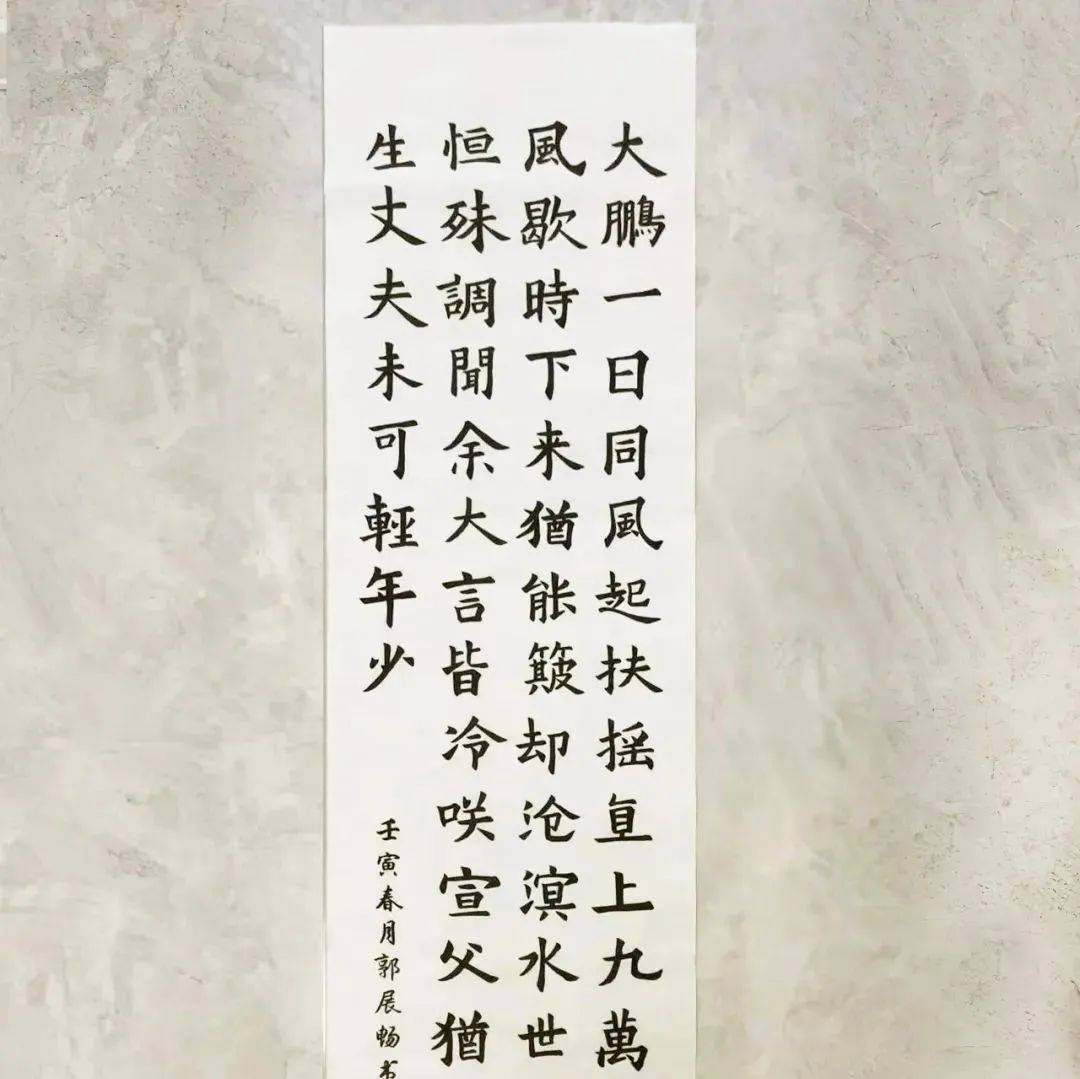 大鵬一日同風起扶摇直上九萬
風歇時下来猶能簸却沧溟水世
恒殊調聞余大言皆冷咲宣父猶
生丈夫未可輕年少
壬寅春月郭展畅书